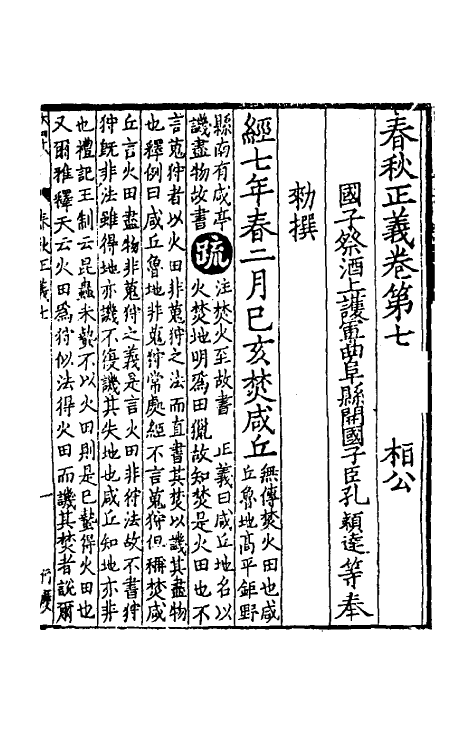 春秋正義卷第七　桓公
國子祭酒上護軍曲阜縣開國子臣孔穎達等奉
勑撰
經七年春二月己亥焚咸丘
無傳焚火田也咸
丘魯地高平鉅野
縣南有咸亭
譏盡物故書
疏
注焚火至故書　正義曰咸丘地名以
火焚地明爲田獵故知焚是火田也不
言蒐狩者以火田非蒐狩之法而直書其焚以譏其盡物
也釋例曰咸丘魯地非蒐狩常處經不言蒐狩但稱焚咸
丘言火田盡物非蒐狩之義是言火田非狩法故不書狩
狩既非法雖得地亦譏不復譏其失地也咸丘知地亦非
也禮記王制云昆蟲未蟄不以火田則是已蟄得火田也
又爾雅釋天云火田爲狩似法得火田而譏其焚者說爾
春秋正義七
一